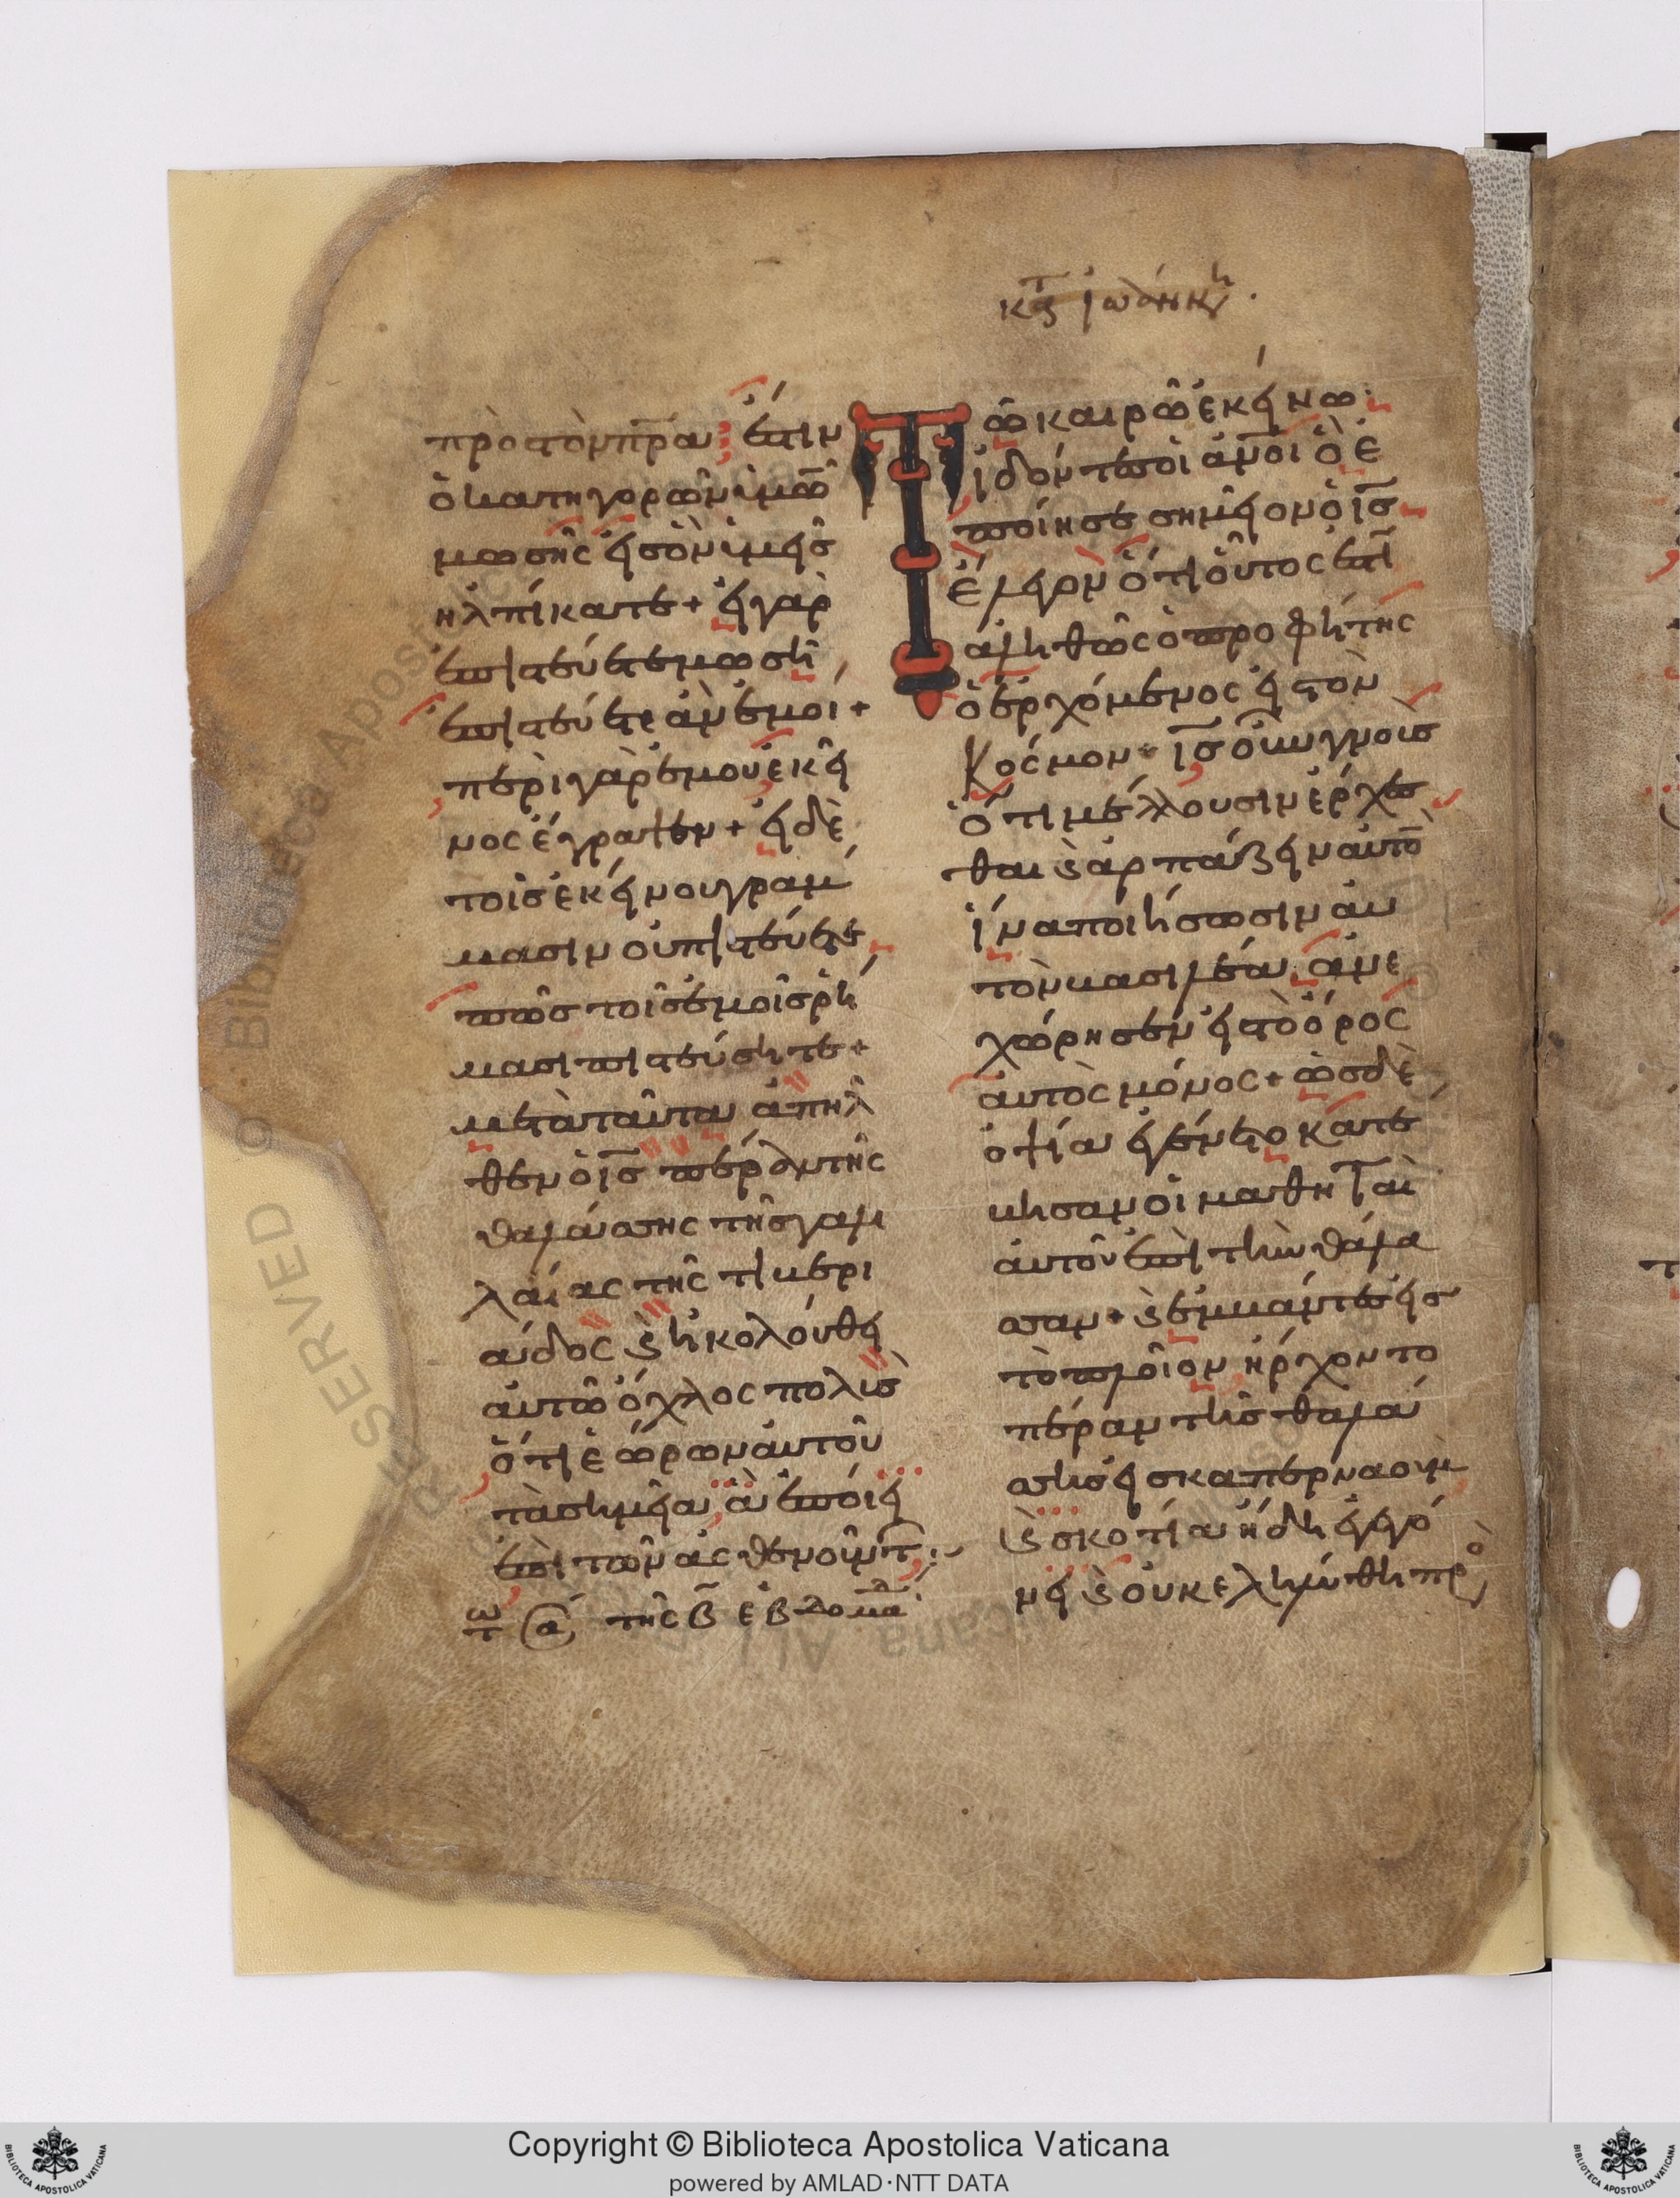 κατ ϊωάννην.
πρὸς τὸν πρ̅α· ἔστιν
ὁ κατηγορῶν ὑμῶν
μωσῆς εἰς ὃν ὑμεῖς
ηλπίκατε + εἰ γὰρ
επιστεύετε μωσῆ
επιστεύετε ἂν ἐμοί +
περὶ γὰρ ἐμοῦ ἐκεῖ
νος ἔγραψεν + εἰ δὲ
τοῖς ἐκείνου γράμ
μασιν οὐ πιστεύετε
πῶς τοῖς ἐμοῖς ρή
μασι πιστεύσητε +
μετὰ ταῦτα ἀπῆλ
θεν ὁ ι̅σ̅ πέραν τῆς
θαλάσσης τῆς γαλι
λαίας τῆς τιβερι
άδος ϗ ἠκολούθει
αὐτῶ ὄχλος πολὺς
ὅτι ἑώρων αὐτοῦ
τὰ σημεῖα ἃ ἐποίει
ἐπὶ τῶν ασθενούντ
τω α της β̅ εβδομα
Τῶ καιρῶ ἐκείνω
ϊδόντες οἱ ἄνο̅ι ὃ ἐ
ποίησε σημεῖον ὁ ι̅σ̅
ἔλεγον ὅτι οὗτός ἐστὶ
ἀληθῶς ὁ προφήτης
ὁ ἐρχόμενος εἰς τὸν
κόσμον + ι̅σ̅ οὖν γνοὺς
ὅτι μέλλουσιν ἔρχεσ
θαι ϗ ἁρπάζειν αὐτὸ
ἵνα ποιήσωσιν αὐ
τὸν βασιλέα· ἀνε
χώρησεν εἰς τὸ ὄρος
αὐτὸς μόνος + ὡς δὲ
ὀψία ἐγένετο κατέ
βησαν οἱ μαθηταὶ
αὐτοῦ ἐπὶ τὴν θάλα
σσαν + ϗ ἐμβάντες εἰς
τὸ πλοῖον ἤρχοντο
πέραν τῆς θαλά
σσης εἰς καπερναοὺμ
ϗ σκοτία ἤδη ἐγεγό
νει ϗ οὐκ εληλύθη προ